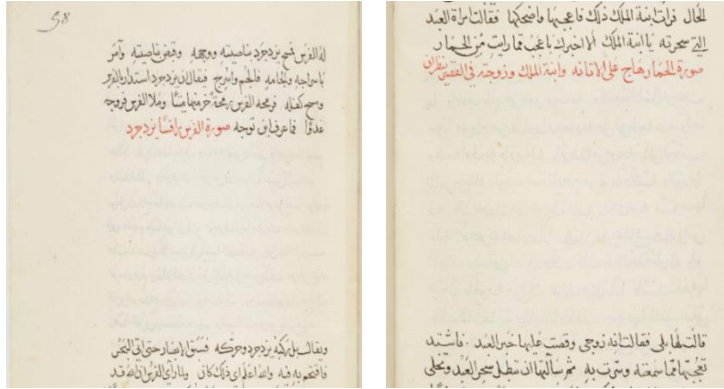 58
له الفرس فمسح يزدجرد ناصيته ووجهه وقبض بناصيته وأمر
باسراجه والجامه فالجم واسرج فيقال ان يزدجرد استدار بالفرس
ومسح كفله فرمحه الفرس رمحة خر منها ميتا وملا الفرس فروجه
عدوا فما عرف اين توجه صورة الفرس رافسًا يزدجرد
ويقال بل ركبه يزدجرد وحركه فسبق الابصار حتى اتى البحر
فاقتحم به فيه والله اعلم اي ذلك كان ولما راى الفرس ان الله قد
الحال فرات ابنة الملك ذلك فاعجبها واضحكها فقالت امراة العبد
التي سحرته يا ابنة الملك الا اخبرك باعجب مما رايت من الحمار
صورة الحمار وهاج على الاتانه وابنة الملك وزوجته في القصر ينظران
قالت لها بلى فقالت انه زوجي وقصت عليها خبر العبد فاشتد
تعجبها مما سمعته وسرت به ثم سالتها ان تبطل سحر العبد وتخلى